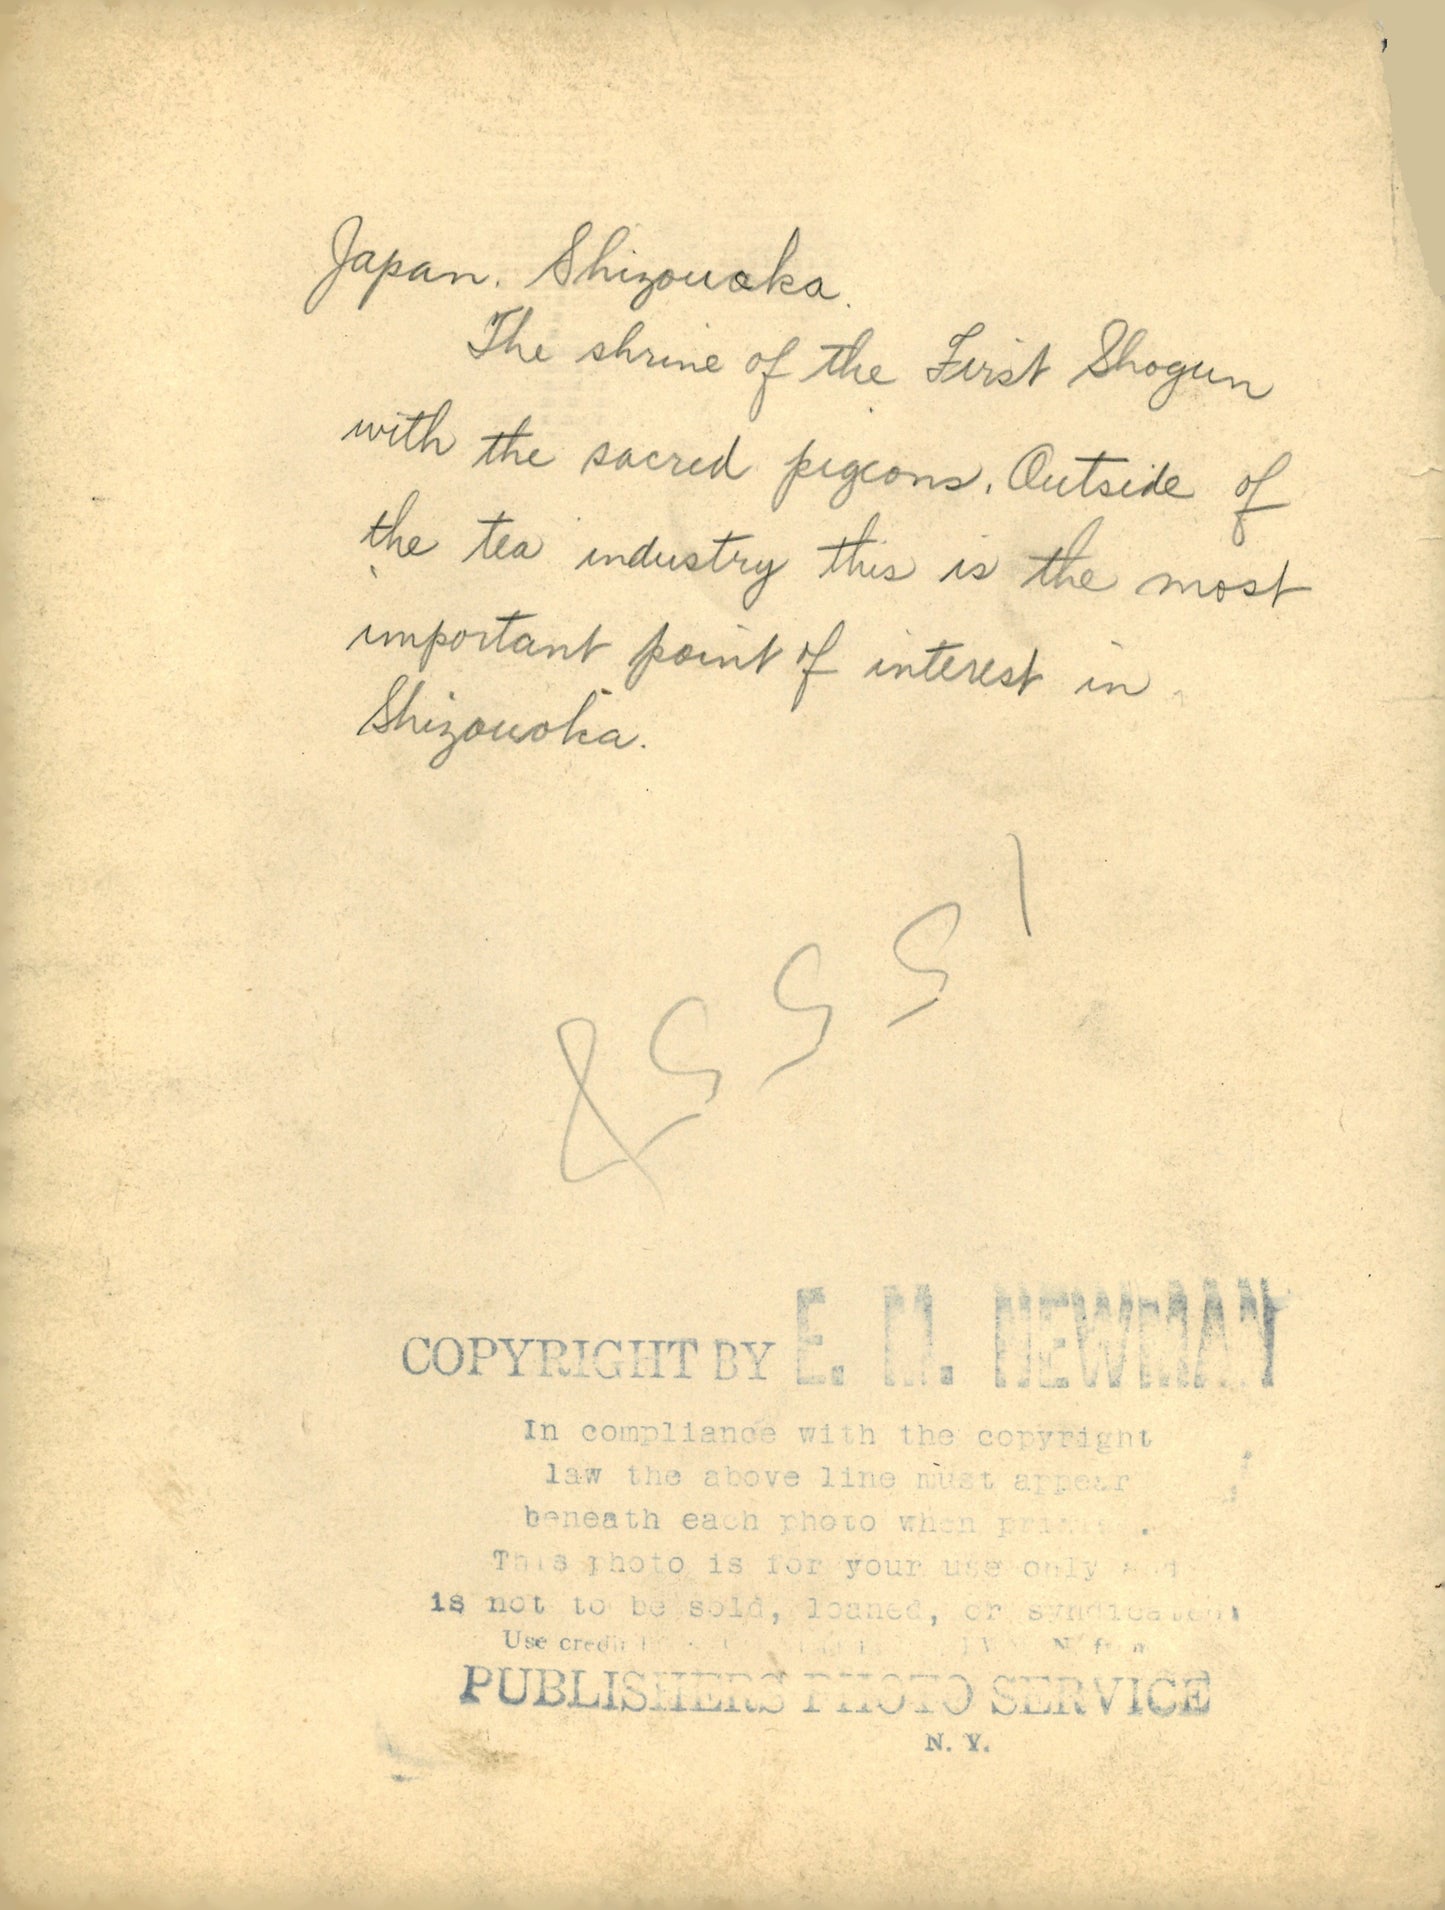 Japan. Shizouoka.
The shrine of the First Shogun
with the sacred pigeons. Outside of
the tea industry this is the most
important point of interest in
Shizouoka.
8551
COPYRIGHT BY E. M. NEWMAN
In compliance with the copyright
law the above line must appear
beneath each photo when
This photo is for your use only and
is not to be sold, loaned, or syndicated
Use credit
PUBLISHERS PHOTO SERVICE
N. Y.